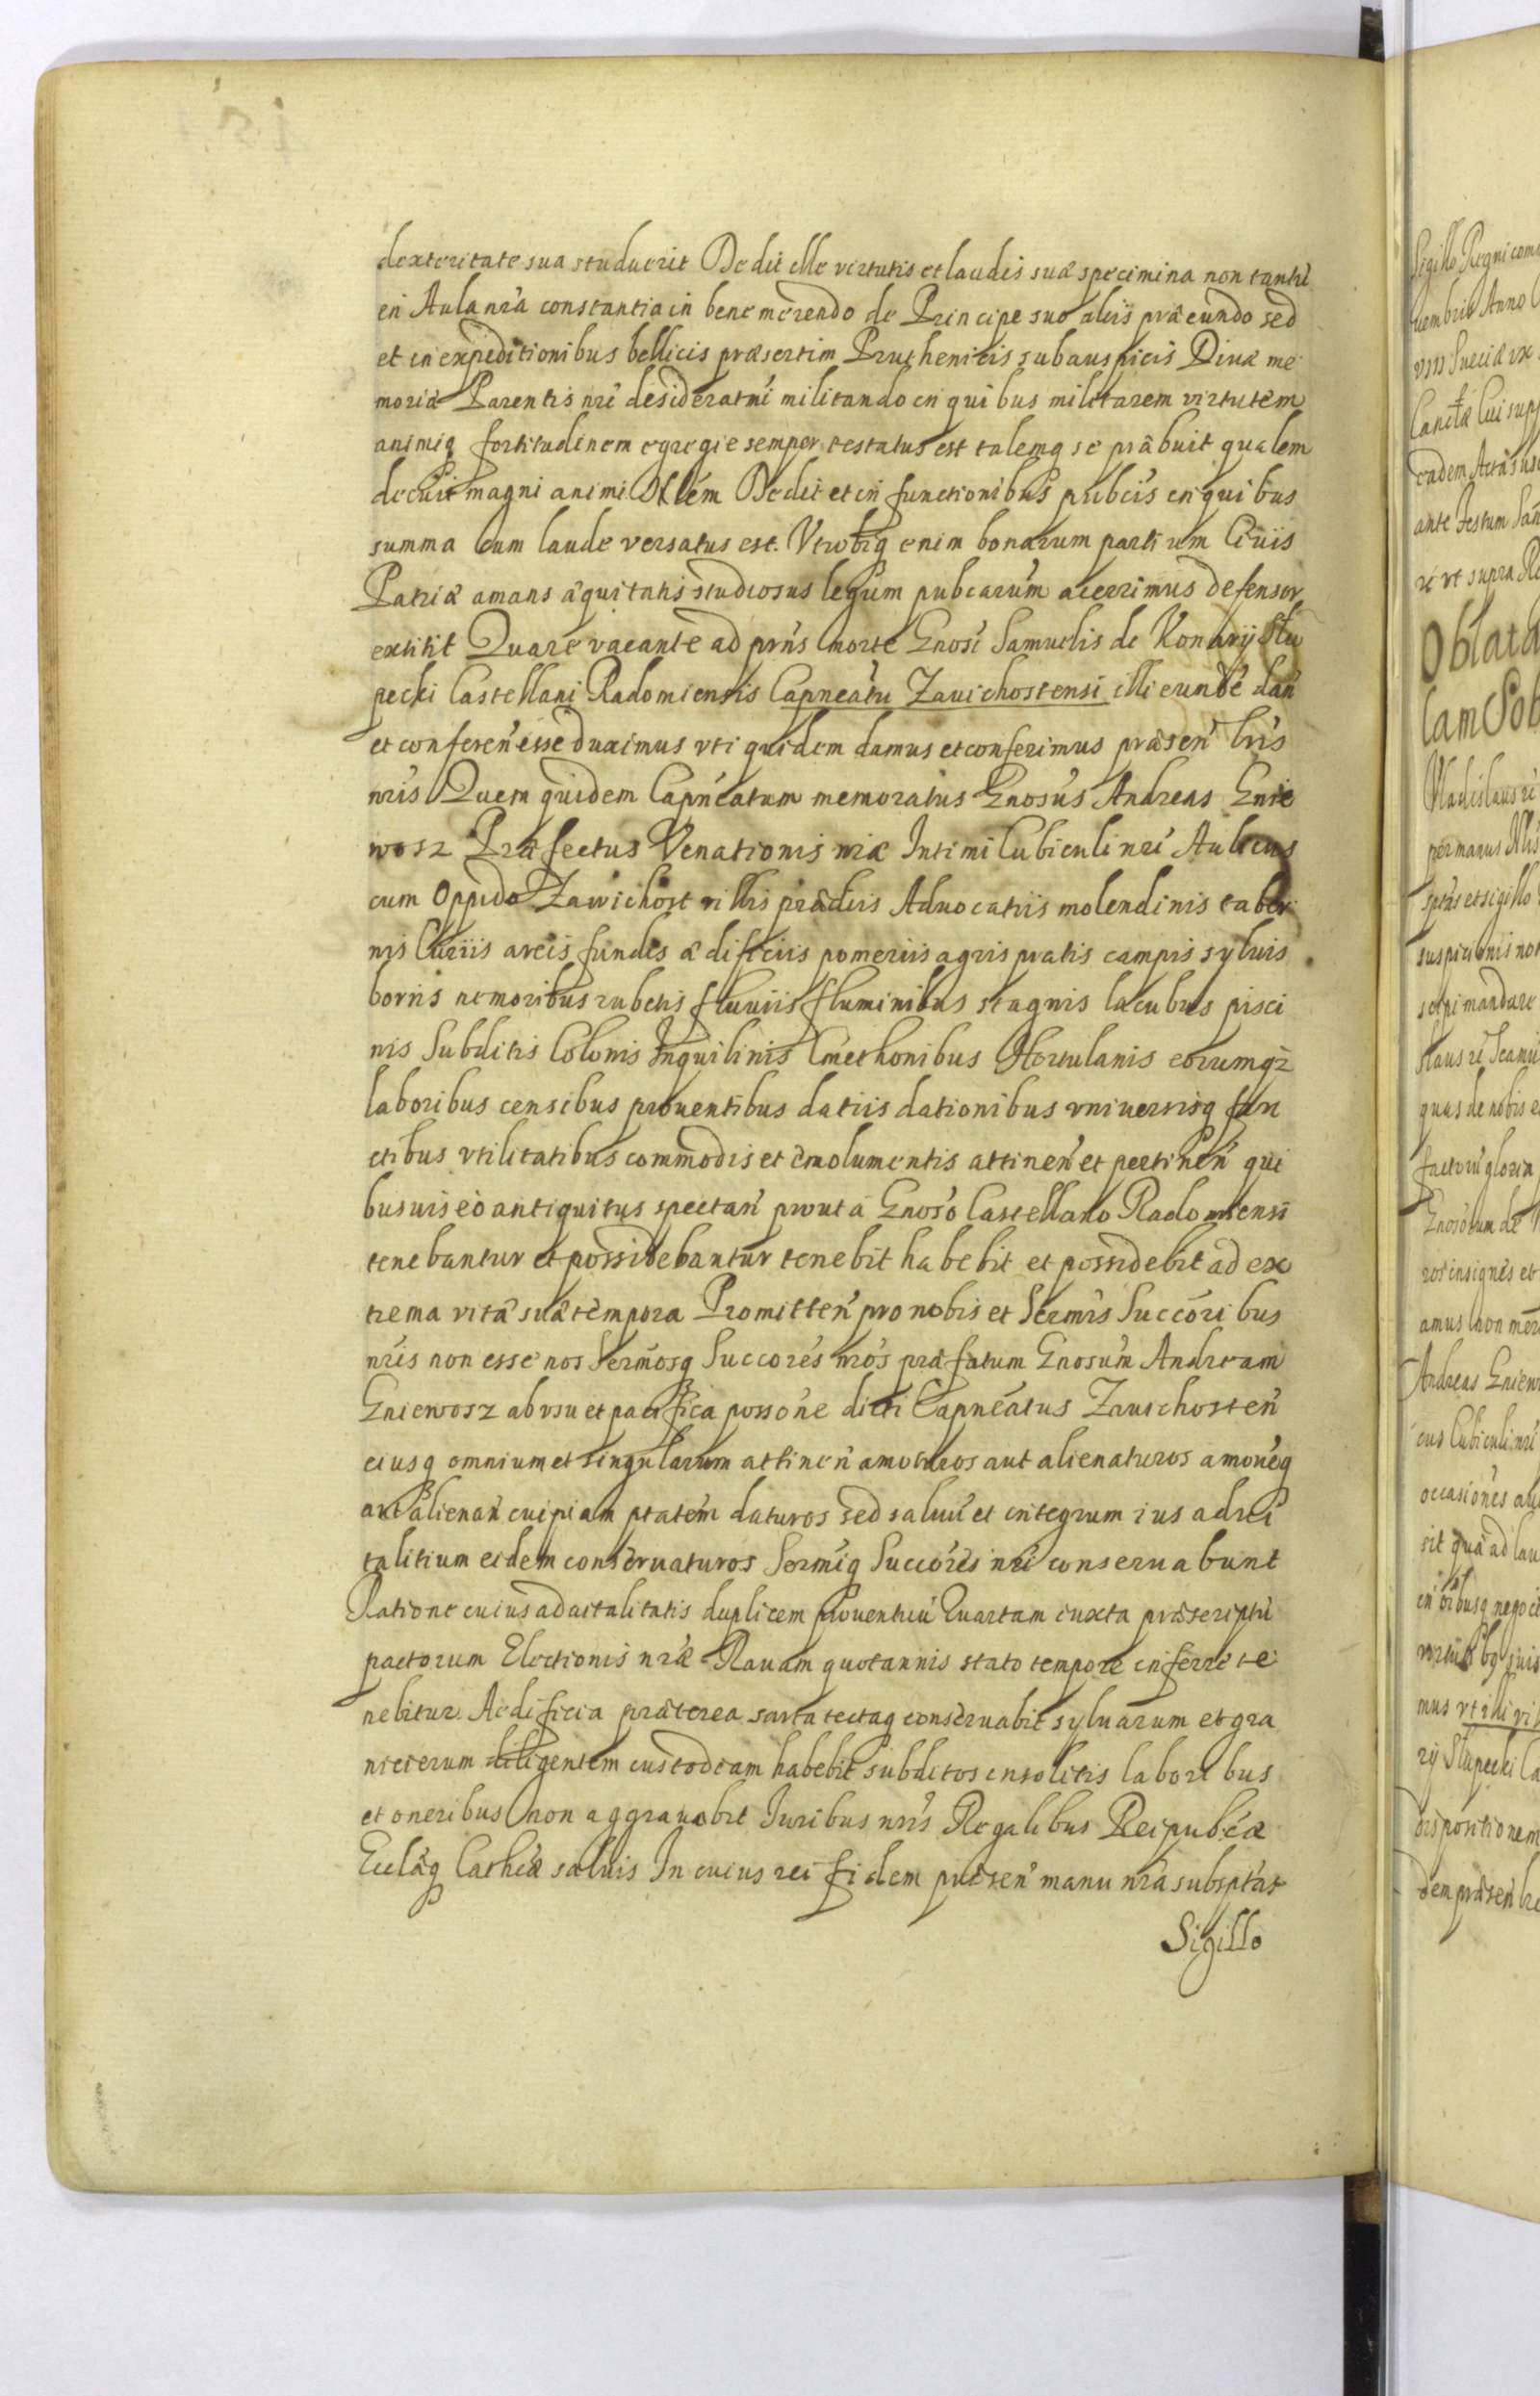 dexteritate sua studuerit Dedit ille virtutis et laudis suæ specimina non tantu
in Aula nrã constantia in bene merendo de Principe suo aliis præeundo sed
et in expeditionibus bellicis præsertim Pruthenicis sub auspicis Divæ me
moriæ Parentis nri desideratmi militando in quibus militarem virtutem
animiq fortitudinem egregie semper testatus est talemq se præbuit qualem
decuit magni animi Dedit et in functionibus pubcis in quibus
summa cum laude versatus est. Vtrobiq enim bonarum partium Civis
Patriæ amans æquitatis studiosus legum pubcarum acerrimus defensor
extitit Quare vacante ad prns morte Gnosi Samuelis de Konarÿ Slu
pecki Castellani Radomiensis Capneatu Zauichostensi illi eunde dan
et conferen esse duximus vti quidem damus et conferimus præsen lris
nris Quem quidem Capneatum memoratus Gnosus Andreas Gnie
wosz Præfectus Venationis nræ Intimi Cubiculi nri Aulicus
cum Oppido Zawichost villis prædiis Aduocatiis molendinis taber
nis Curiis areis fundis ædificiis pomeriis agris pratis campis syluis
borris nemoribus rubetis fluuiis fluminibus stagnis lacubus pisci
nis Subditis Colonis Inquilinis Cmethonibus Hortulanis eorumq
laboribus censibus prouentibus datiis dationibus vniuersisq fru
ctibus vtilitatibus commodis et emolumentis attinen et pertinen qui
busuis eo antiquitus spectan prout a Gnoso Castellano Radomiensi
tenebantur et possidebantur tenebit habebit et possidebit ad ex
trema vitæ suæ tempora Promitten pro nobis et Sermis Succoribus
nris non esse nos Sermosq Succores nros præfatum Gnosum Andream
Gniewosz ab vsu et pacifica possone dicti Capneatus Zauichosten
eiusq omnium et singularum attinen amoturos aut alienaturos amouenq
aut alienan cuipiam ptatem daturos sed saluu et integrum ius adui
talitium eidem conseruaturos Sermiq Succores nri conseruabunt
Ratione cuius aduitalitatis duplicem prouentuu Quartam iuxta præscriptu
pactorum Electionis nræ Rauam quotannis stato tempore inferre te
nebitur. Aedificia præterea sarta tectaq conseruabit syluarum et gra
nicierum diligentem custodiam habebit subditos insolitis laboribus
et oneribus non aggrauabit Iuribus nris Regalibus Reipubcæ
Ecclæq Cathcæ saluis In cuius rei fidem præsen manu nra subsptas
Sigillo
Sigillo Regni com
uembris Anno
Sueciæ
Cui supp
eadem Acta
ante Festum San
ri vt supra
Oblata
Vladislaus
per manus
et sigillo
suspicionis
mandare
quas de nobis
factoru gloria
Gnosorum de
insignes et
amus non
Andreas Gniew
cus Cubiculi nri
occasiones
sit qua ad lau
negoci
suis
mus vt illi
rÿ Slupecki Ca
dispositionem
dem præsen